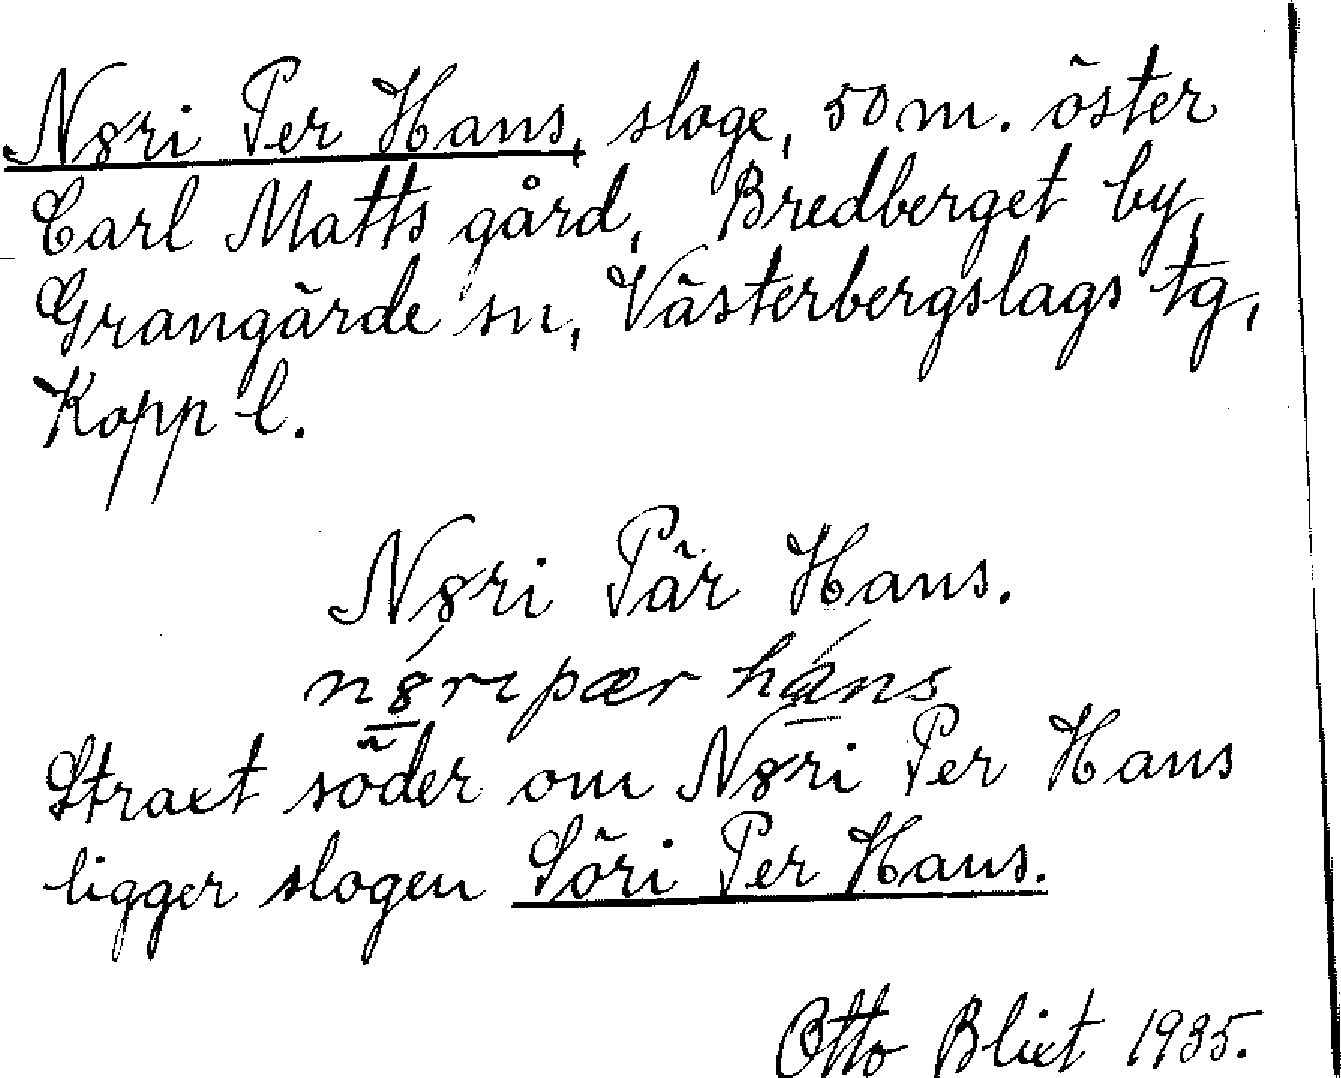 N8ri Per Hans, sloge, 50 m. öster
Carl Matts gård, Bredberget by,
Grangärde sn, Västerbergslags tg,
Kopp l.
N8ri Pär Hans.
n8rɩpær háns
Straxt söder om N8ri Per Hans
ligger slogen Söri Per Hans.
Otto Blixt 1935.